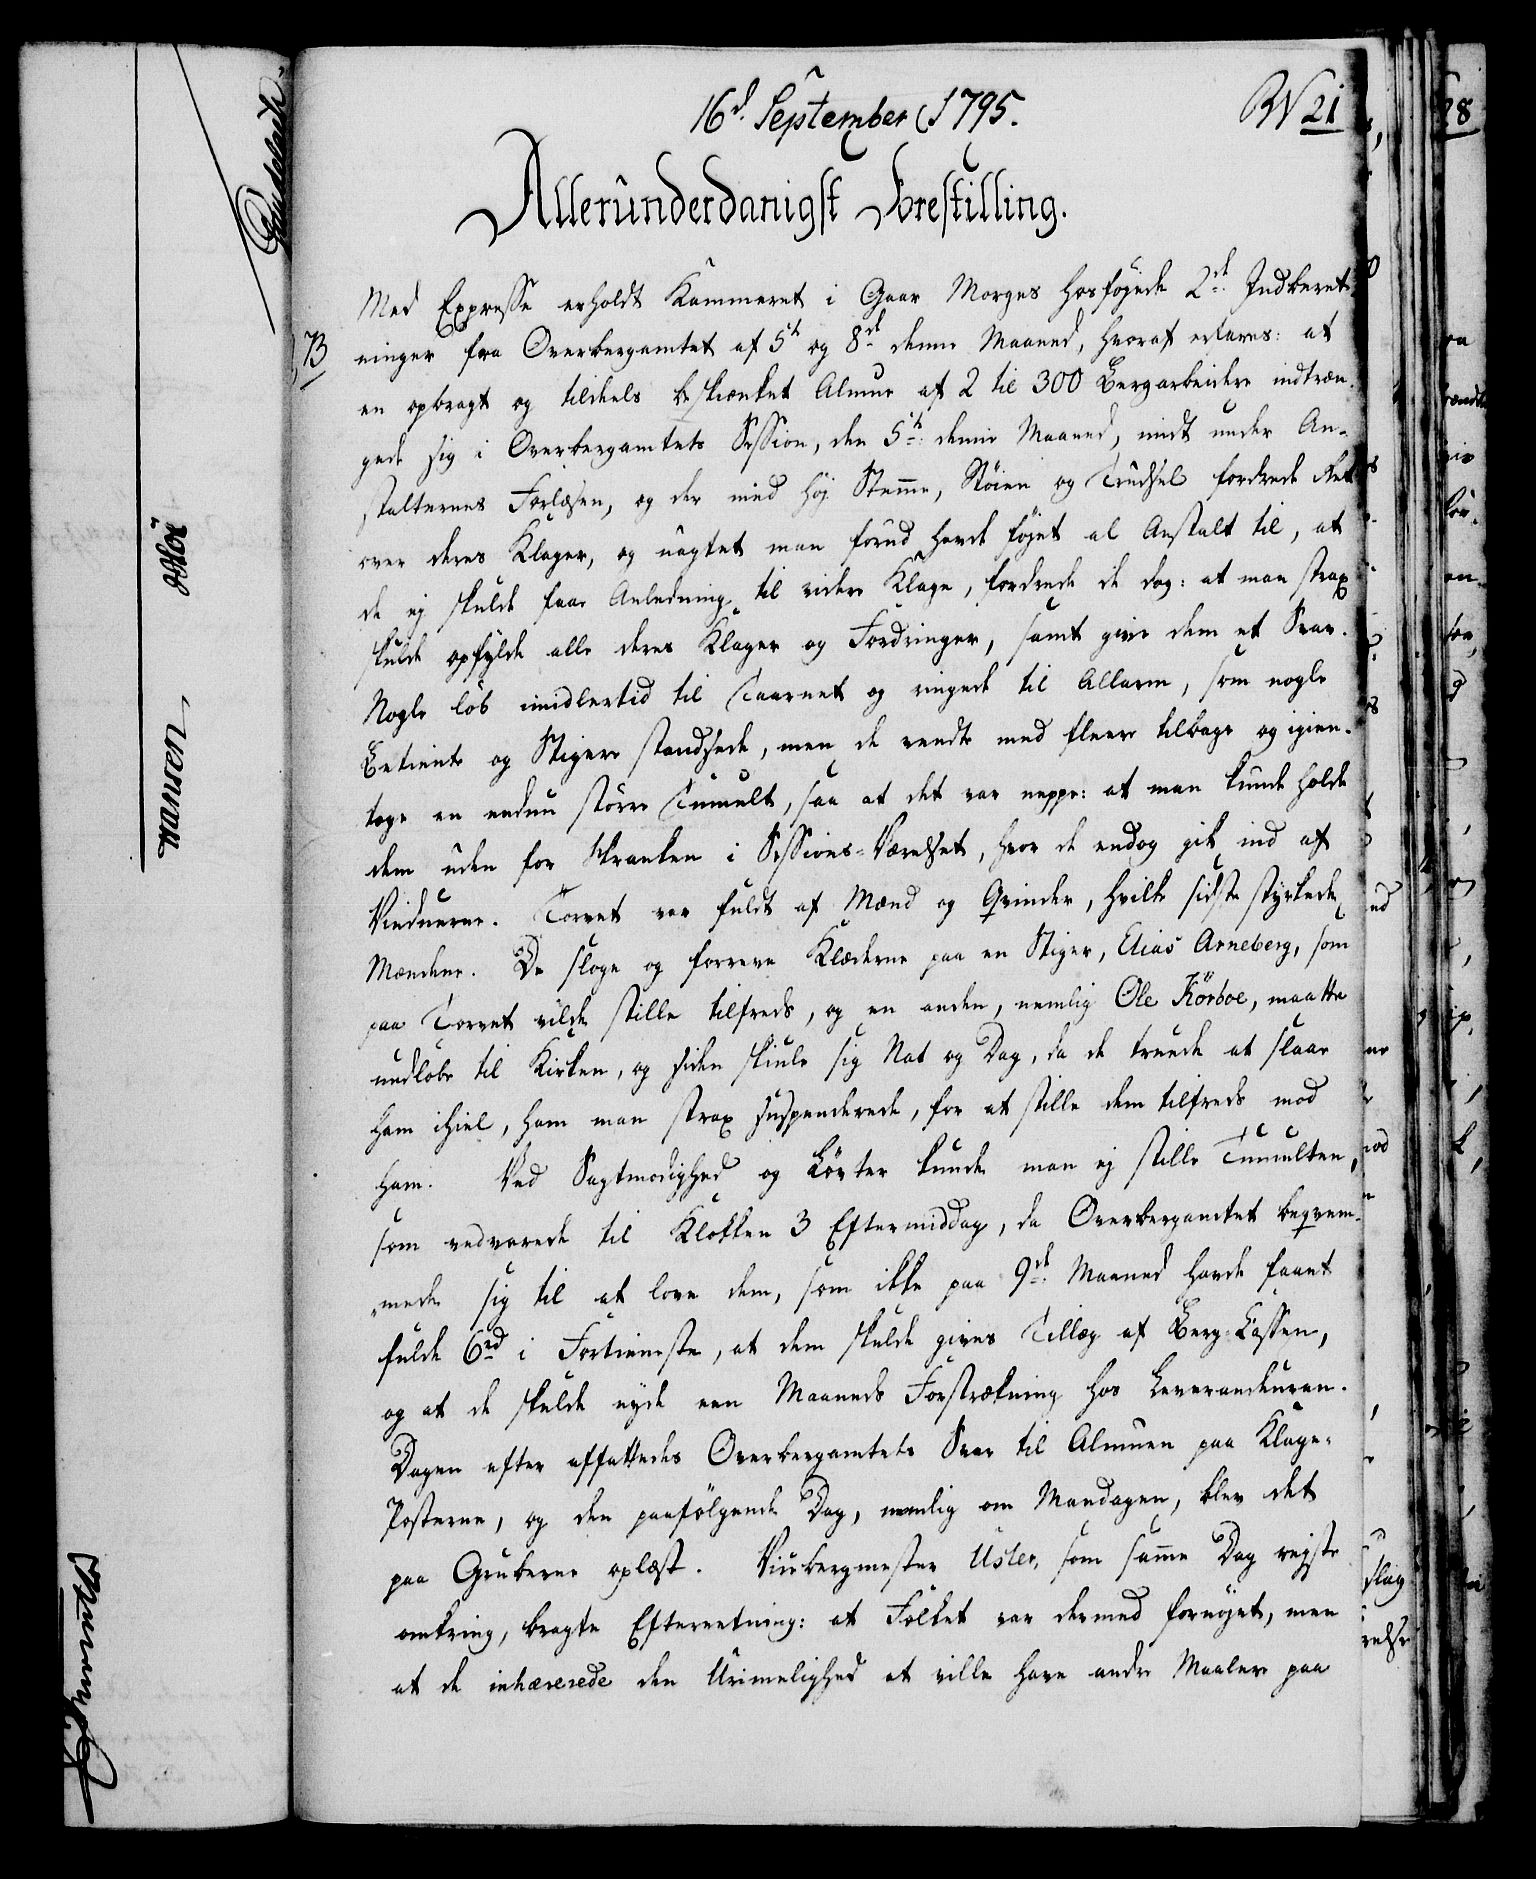 16d. September 1795.
21
Allerunderdanigst Forestilling.
Med Expresse erholdt Kammeret i Gaar Morges hosföjede 2de. Indberet-
73 ninger fra Overbergamtet af 5t og 8de denne Maaned, hvoraf erfares: at
en opbragt og tildeels beskienket Almue af 2 til 300 Bergarbeidere indtræn-
gede sig i Overbergamtets Session, den 5te: denne Maaned, midt under An-
stalternes Forlæsen, og der med höj Stemme, Stöien og Trudsel fordrede Ret
over deres Klager, og uagtet man forud havde föjet al Anstalt til, at
de ej skulde faae Anledning til videre Klage, fordrede de dog: at man strax
skulde opfylde alle deres Klager og Fordringer, samt give dem et Svar.
Nogle löb imidlertid til Taarnet og ringede til Allarm, som nogle
Betiente og Stigere standsede, men de rendte med fleere tilbage og igien-
toge en endnu större Tumult, saa at det var neppe: at man kunde holde
dem uden for Skranken i Sessions-Værelset, hvor de endog gik ind af
Vinduerne. Torvet var fuldt af Mænd og Qvinder, hvilke sidste styrkede
Mændene. De sloge og forreve Klæderne paa en Stiger, Elias Arneberg, som
paa Torvet vilde stille tilfreds, og en anden, nemlig Ole Körboe, maatte
undlöbe til Kirken, og siden skiule sig Nat og Dag, da de truede at slaae
ham ihiel, ham man strax suspenderede, for at stille dem tilfreds mod
ham. Ved Sagtmodighed og Löfter kunde man ej stille Tumulten,
som vedvarede til Klokken 3 Eftermiddag, da Overbergamtet beqvem-
mede sig til at love dem, som ikke paa 9de: Maaned havde faaet
fulde 6rd i Fortieneste, at dem skulde gives Tillæg af Berg-Cassen,
og at de skulde nyde een Maaneds Forstrækning hos Leverandeuren.
Dagen efter affattedes Overbergamtets Svar til Almuen paa Klage-
Posterne, og den paafölgende Dag, nemlig om Mandagen, blev det
paa Gruberne oplæst. Vicebergmester Usler, som samme Dag rejste
omkring, bragte Efterretning: at Folket var dermed fornöjet, men
at de inhærerede den Urimelighed at ville have andre Maalere paa